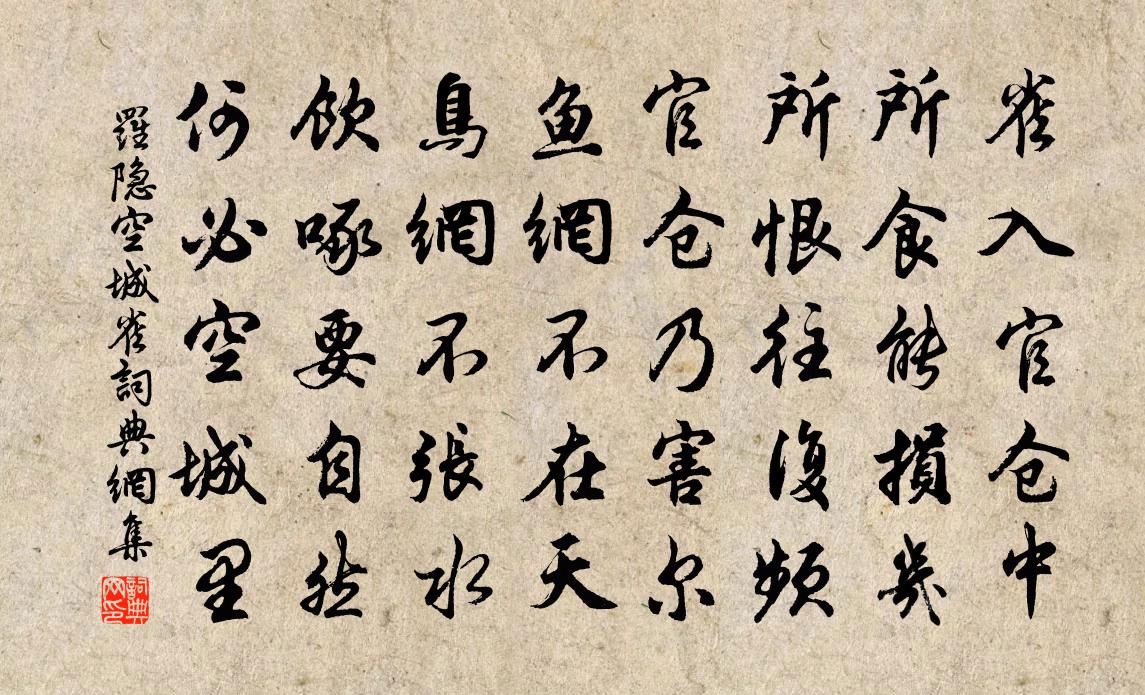 雀入官仓中
所食能損幾
所恨往復頻
官仓乃害尔
鱼網不在天
鳥網不張水
飲啄要自然
何必空城里
羅隐空城雀詞典網集
詞典网印